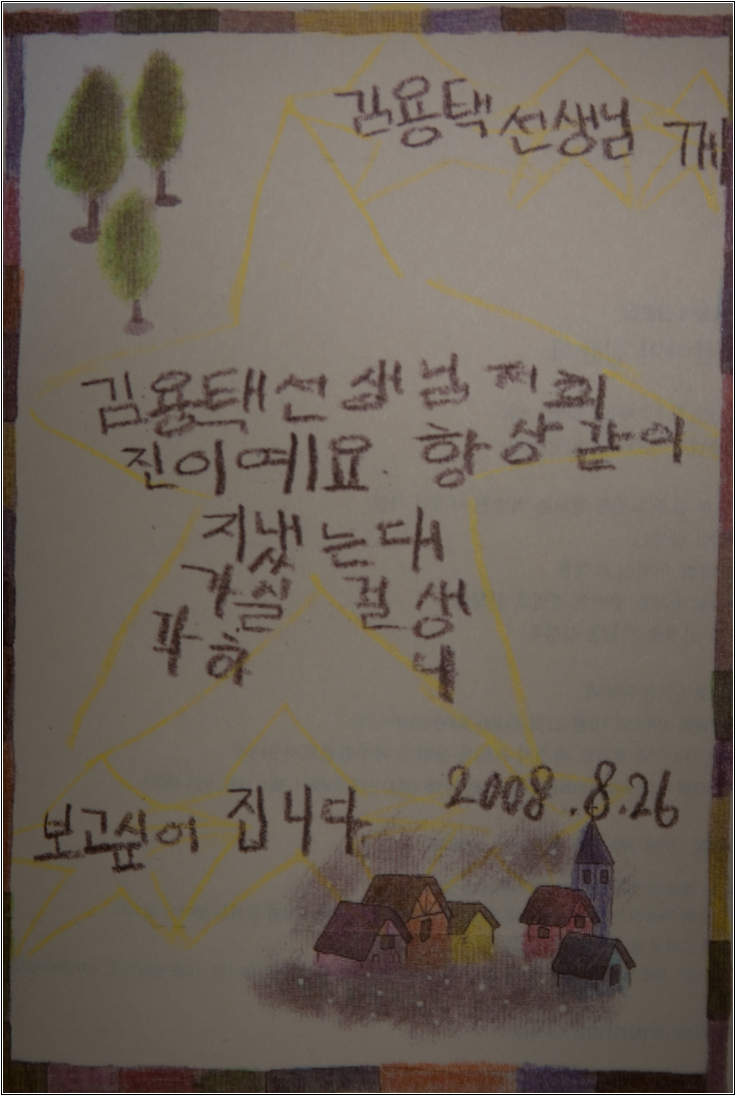 김용택선생님 께
김용택선생님 저희
진이예요. 항상같이
지냈는대
가실 걸 생
각하 니
보고싶어 집니다.
2008.8.26